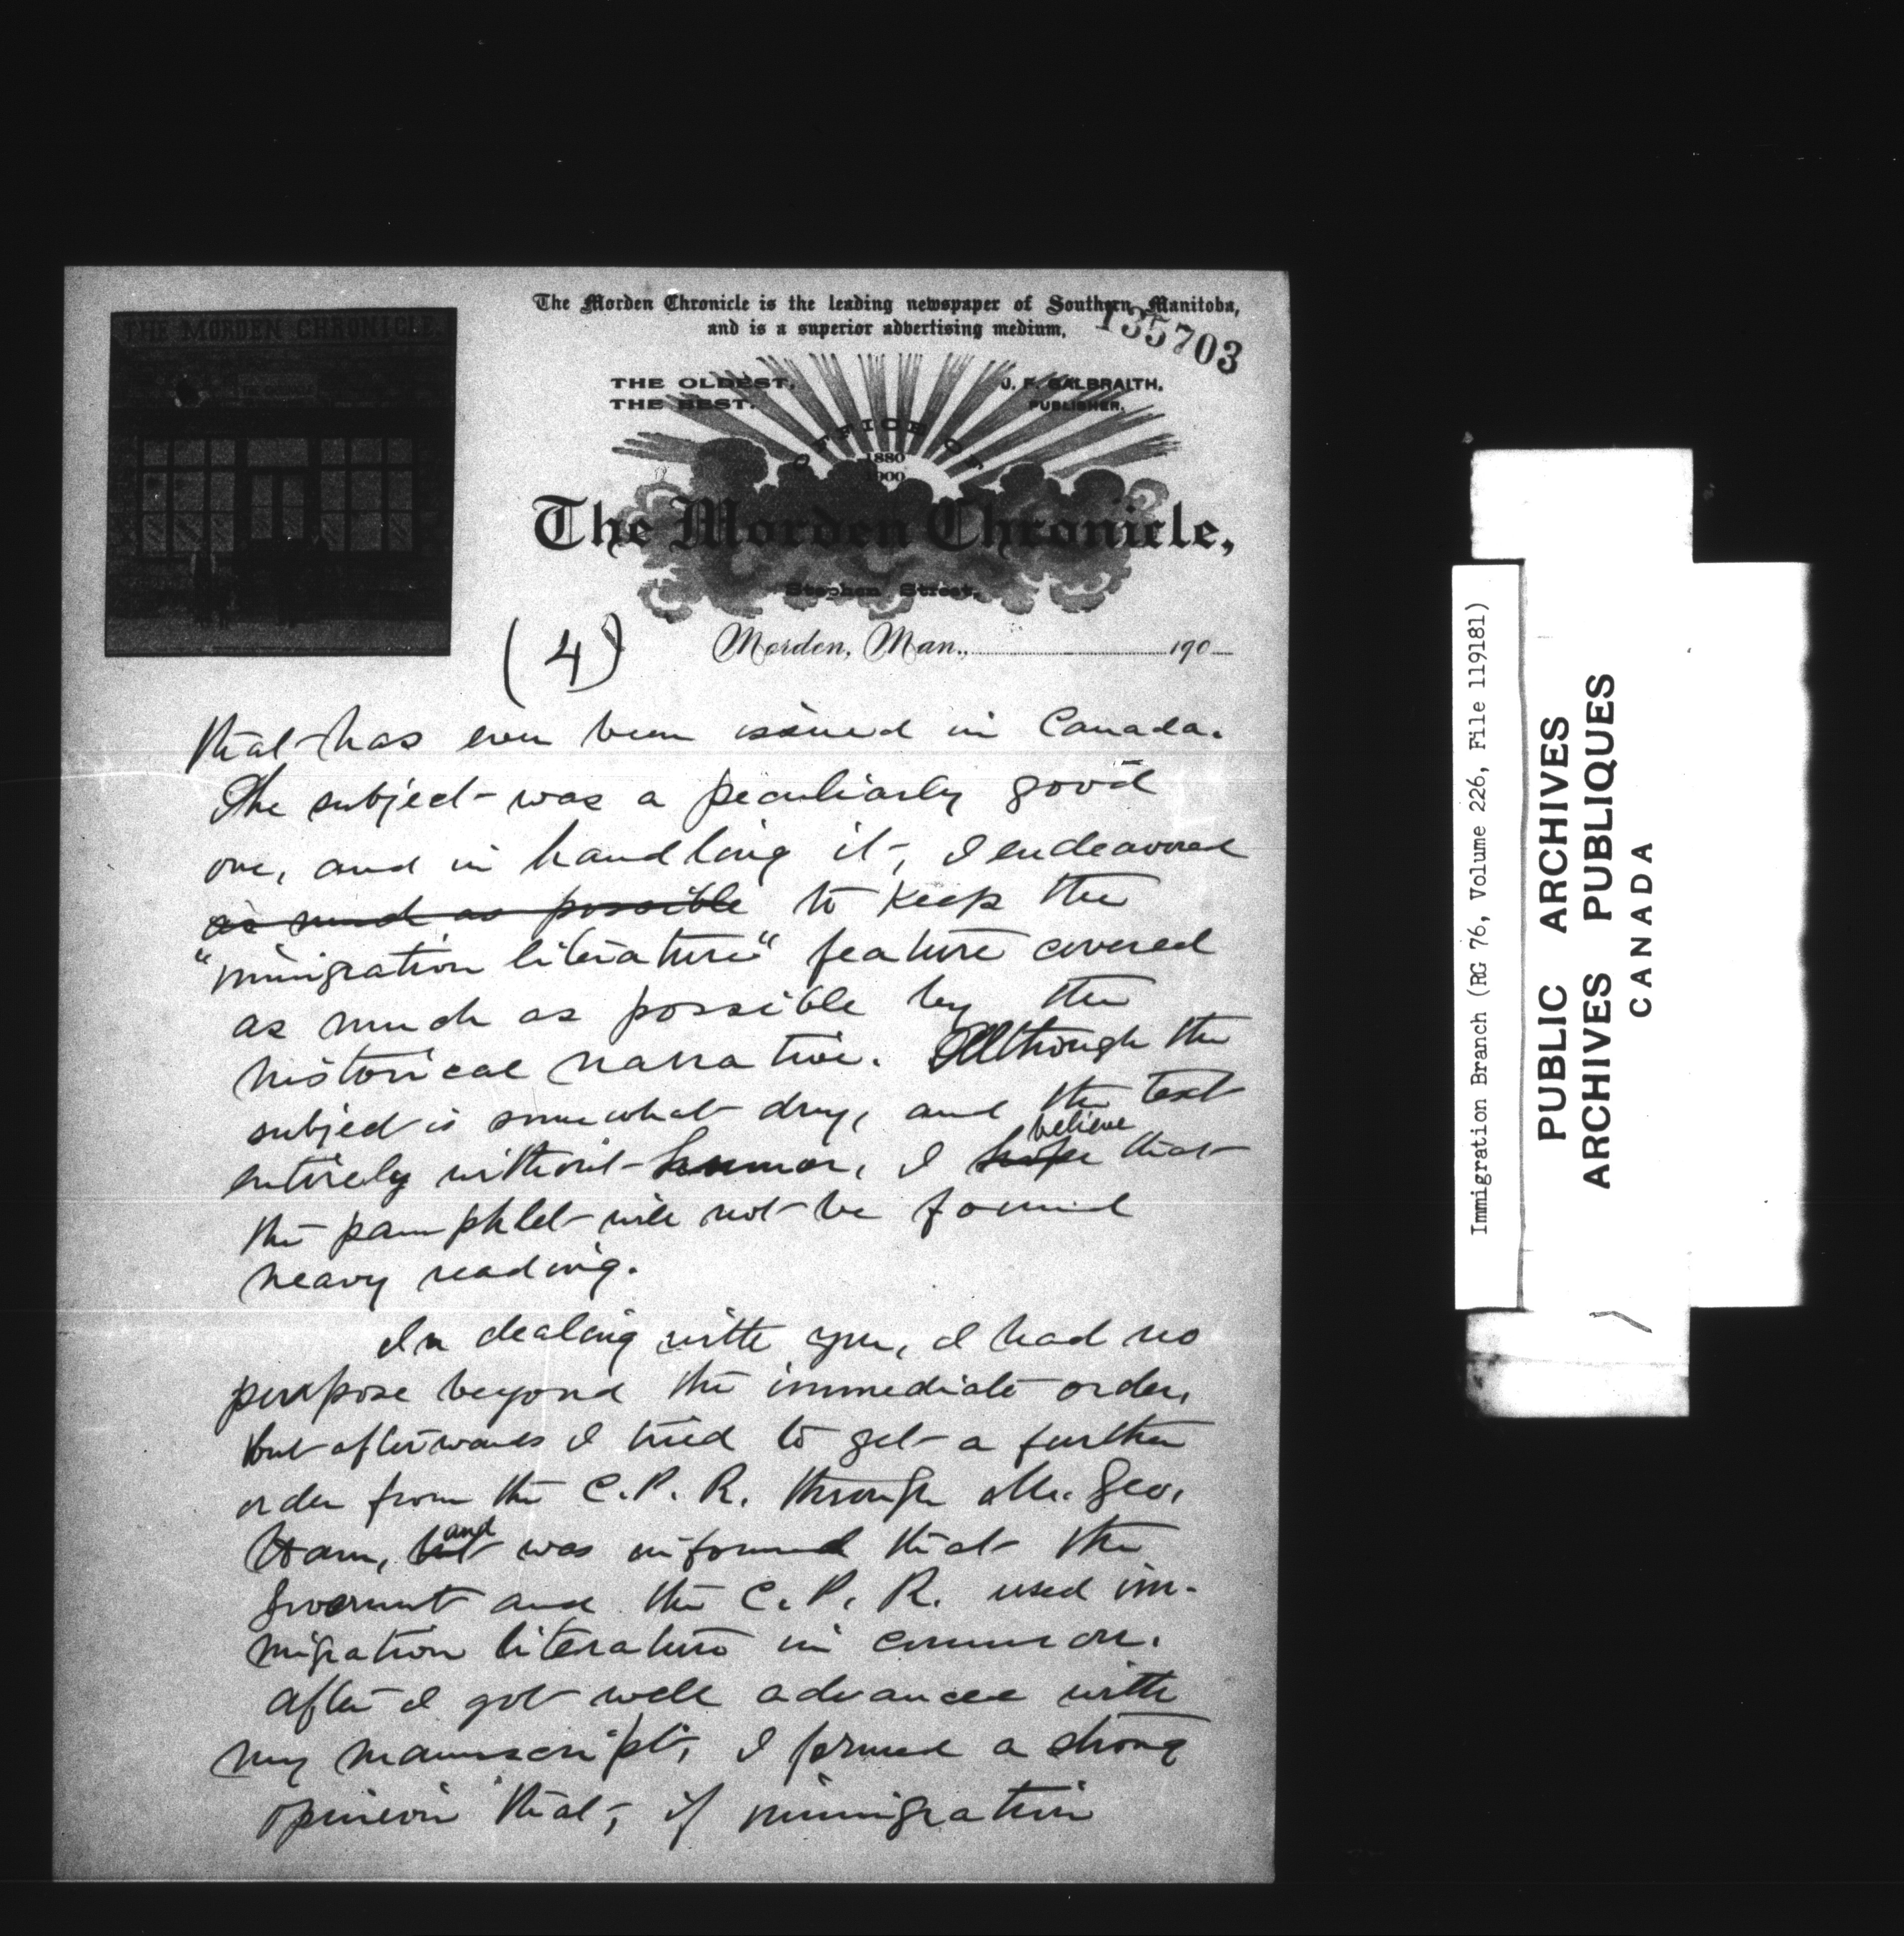 The Morden Chronicle is the leading newspaper of Southern Manitoba,
and is a superior advertising medium.
135703
THE MORDEN CHRONICLE.
THE OLDEST,
THE BEST.
J. F. GALBRAITH,
PUBLISHER.
OFFICE OF
1880
1900
The Morden Chronicle,
Stephen Street,
(4)
Morden, Man., 190
that has ever been issued in Canada.
The subject was a peculiarly good
one, and in handling it, I endeavored
as much as possible to keep the
"immigration literature" feature covered
as much as possible by the
historical narrative. Although the
subject is somewhat dry, and the text
believe
entirely without humor, I hope that
the pamphlet will not be found
heavy reading.
In dealing with you, I had no
purpose beyond the immediate order,
but afterwards I tried to get a further
order from the C. P. R. through Mr. Geo.
and
Ham, but was informed that the
Goverment and the C. P. R. used im-
migration literature in common.
After I got well advanced with
my manuscript, I formed a strong
opinion that, if immigration
Immigration Branch (RG 76, Volume 226, File 119181)
PUBLIC ARCHIVES
ARCHIVES PUBLIQUES
CANADA